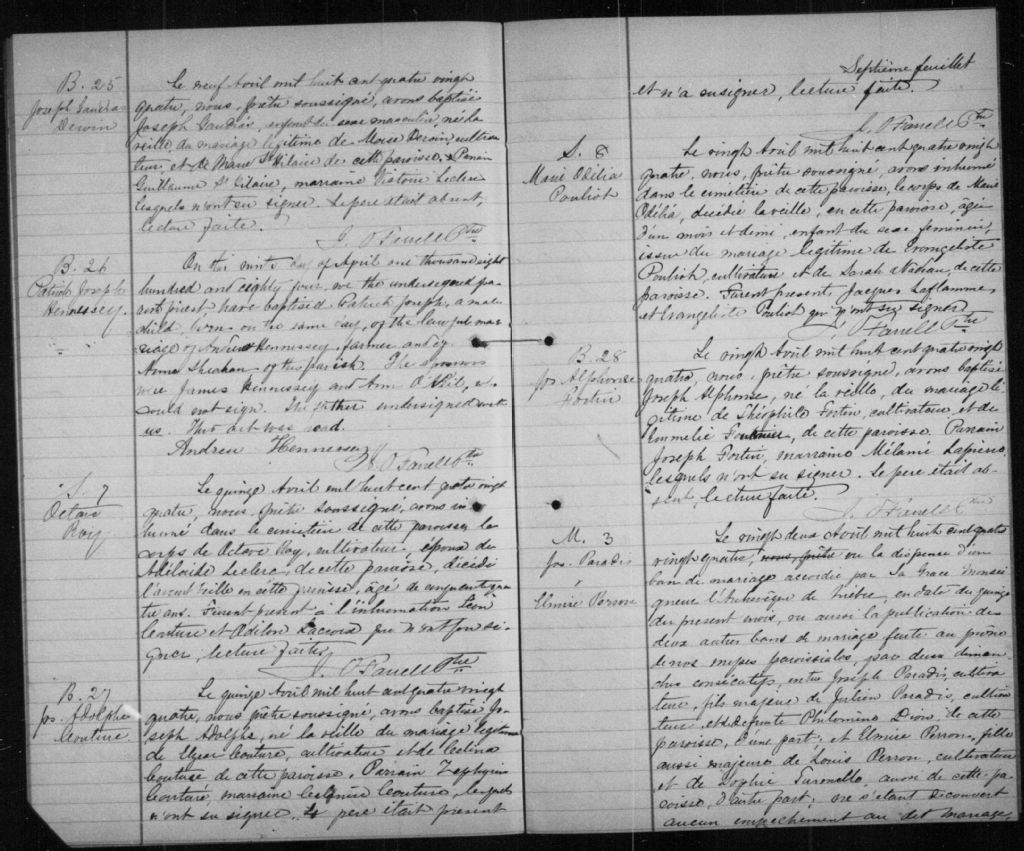 B. 25
Joseph
Deroin
Le neuf Avril mil huit cent quatre vingt
quatre, nous, prêtre soussigné, avons baptisé
Joseph, enfant du sexe masculin, né la
veille, du mariage légitime de Moise Deroin, cultiva-
teur, et de Marie St Hilaire de cette paroisse. Parrain
Guillaume St Hilaire, marraine Victoire Leclerc
lesquels n'ont su signer. Le pere était absent,
lecture faite.
J. O'Farrell Ptre
B. 26
Patrick Joseph
Hennessey
On this ninth day of April one thousand eight
hundred and eighty four, we the undersigned pa-
rish priest, have baptised Patrick Joseph, a male
child, born on the same day, of the lawful mar-
riage of Andrew Hennessey, farmer, and of
Anne Sheehan of this parish. The sponsors
were James Hennessey and Ann O'Neil, who
could not sign. The father undersigned with
us. This act was read.
Andrew Hennessey
J. O'Farrell Ptre
S. 7
Octave
Roy
Le quinze Avril mil huit cent quatre vingt
quatre, nous, prêtre soussigné, avons in-
humé dans le cimetière de cette paroisse, le
corps de Octave Roy, cultivateur, époux de
Adélaide Leclerc, de cette paroisse, décédé
l'avant veille en cette paroisse, âgé de cinquante qua-
tre ans. Furent present à l'inhumation Léon
Couture et Odilon Lacroix qui n'ont su si-
gner, lecture faite.
J. O'Farrell Ptre
B. 27
Jos. Adolphe
Couture.
Le quinze Avril mil huit cent quatre vingt
quatre, nous prêtre soussigné, avons baptisé Jo-
seph Adolphe, né la veille du mariage légitime
de Elzear Couture, cultivateur et de Celina
Couture de cette paroisse. Parrain Zephirin
Couture, marraine Couture, lesquels
n'ont su signer. Le pere était présent
Septième feuillet
et n'a su signer, lecture faite.
J. O'Farrell Ptre
S. 8
Marie Odélia
Pouliot
Le vingt Avril mil huit cent quatre vingt
quatre, nous, prêtre soussigné, avons inhumé
dans le cimetière de cette paroisse, le corps de Marie
Odélia, décédée la veille, en cette paroisse, âgée
d'un mois et demi, enfant du sexe feminin,
issue du mariage legitime de Evangeliste
Pouliot, cultivateur et de Sarah, de cette
paroisse. Furent present, Jacques Laflamme
et Evangeliste Pouliot qui n'ont su signer
J. O'Farrell Ptre
B. 28
Jos. Alphonse
Fortin
Le vingt Avril mil huit cent quatre vingt
quatre, nous, prêtre soussigné, avons baptisé
Joseph Alphonse, né la veille, du mariage lé-
gitime de Théophile Fortin, cultivateur, et de
Emmelie Fournier, de cette paroisse. Parrain
Joseph Fortin, marraine Mélanie Lapierre
lesquels n'ont su signer. Le pere était ab-
sent, lecture faite.
J. O'Farrell Ptre
M. 3
Jos. Paradis
&
Elmire Perron
Le vingt deux Avril mil huit cent quatre
vingt quatre, nous, prêtre vu la dispense d'un
ban de mariage accordée par Sa Grace Monsei-
gneur l'Archevêque de Québec, en date du quinze
du present mois, vu aussi la publication de
deux autres bans de mariage faite au prône
de nos messes paroissiales, par deux diman-
ches consécutifs, entre Joseph Paradis, cultiva-
teur, fils majeur de Julien Paradis, cultiva-
teur, et defunte Philomène Dion, de cette
paroisse, d'une part; et Elmire Perron, fille
aussi majeure de Louis Perron, cultivateur
et de Sophie, aussi de cette pa-
roisse, d'autre part; ne s'étant découvert
aucun empêchement au dit mariage,